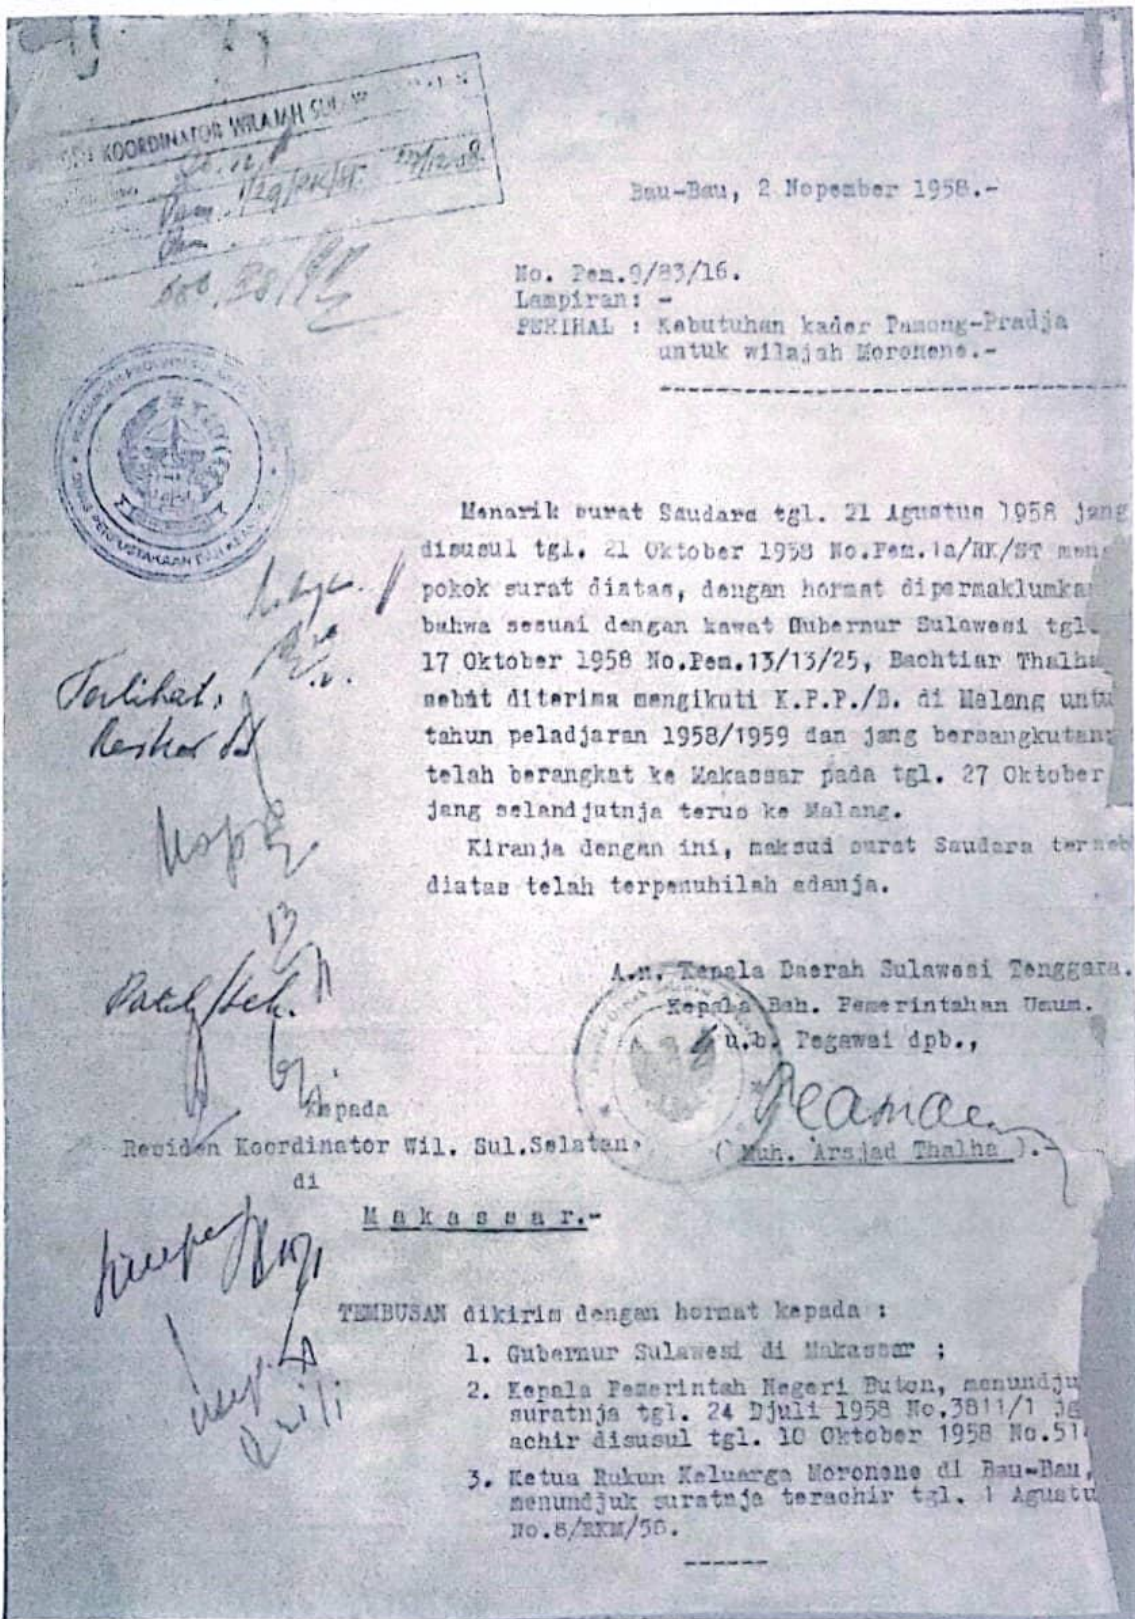 KOORDINATOR WILAJAH
Bau-Bau, 2 Nopember 1958.-
No. Pem.9/83/16.
Lampiran: -
PERIHAL : Kebutuhan kader Pamong-Pradja
untuk wilajah Moronene.-
Menarik surat Saudara tgl. 21 Agustus 1958 jang
disusul tgl. 21 Oktober 1958 No.Pem.1a/RK/ST meng
pokok surat diatas, dengan hormat dipermaklumka
bahwa sesuai dengan kawat Gubernur Sulawesi tgl.
17 Oktober 1958 No.Pem.13/13/25, Bachtiar Thalha
sebut diterima mengikuti K.P.P./B. di Malang untu
tahun peladjaran 1958/1959 dan jang bersangkutan
telah berangkat ke Makassar pada tgl. 27 Oktober
jang selandjutnja terus ke Malang.
Kiranja dengan ini, maksud surat Saudara terseb
diatas telah terpenuhilah adanja.
Terlihat,
A.n. Kepala Daerah Sulawesi Tenggara.
Kepala Bah. Pemerintahan Umum.
u.b. Pegawai dpb.,
(Muh. Arsjad Thalha).-
Kepada
Residen Koordinator Wil. Sul.Selatan.
di
Makassar.-
TEMBUSAN dikirim dengan hormat kepada :
1. Gubernur Sulawesi di Makassar ;
2. Kepala Pemerintah Negeri Buton, menundju
suratnja tgl. 24 Djuli 1958 No.3811/1 jg
achir disusul tgl. 10 Oktober 1958 No.51
3. Ketua Rukun Keluarga Moronene di Bau-Bau,
menundjuk suratnja terachir tgl. 1 Agustu
No.8/RKM/58.